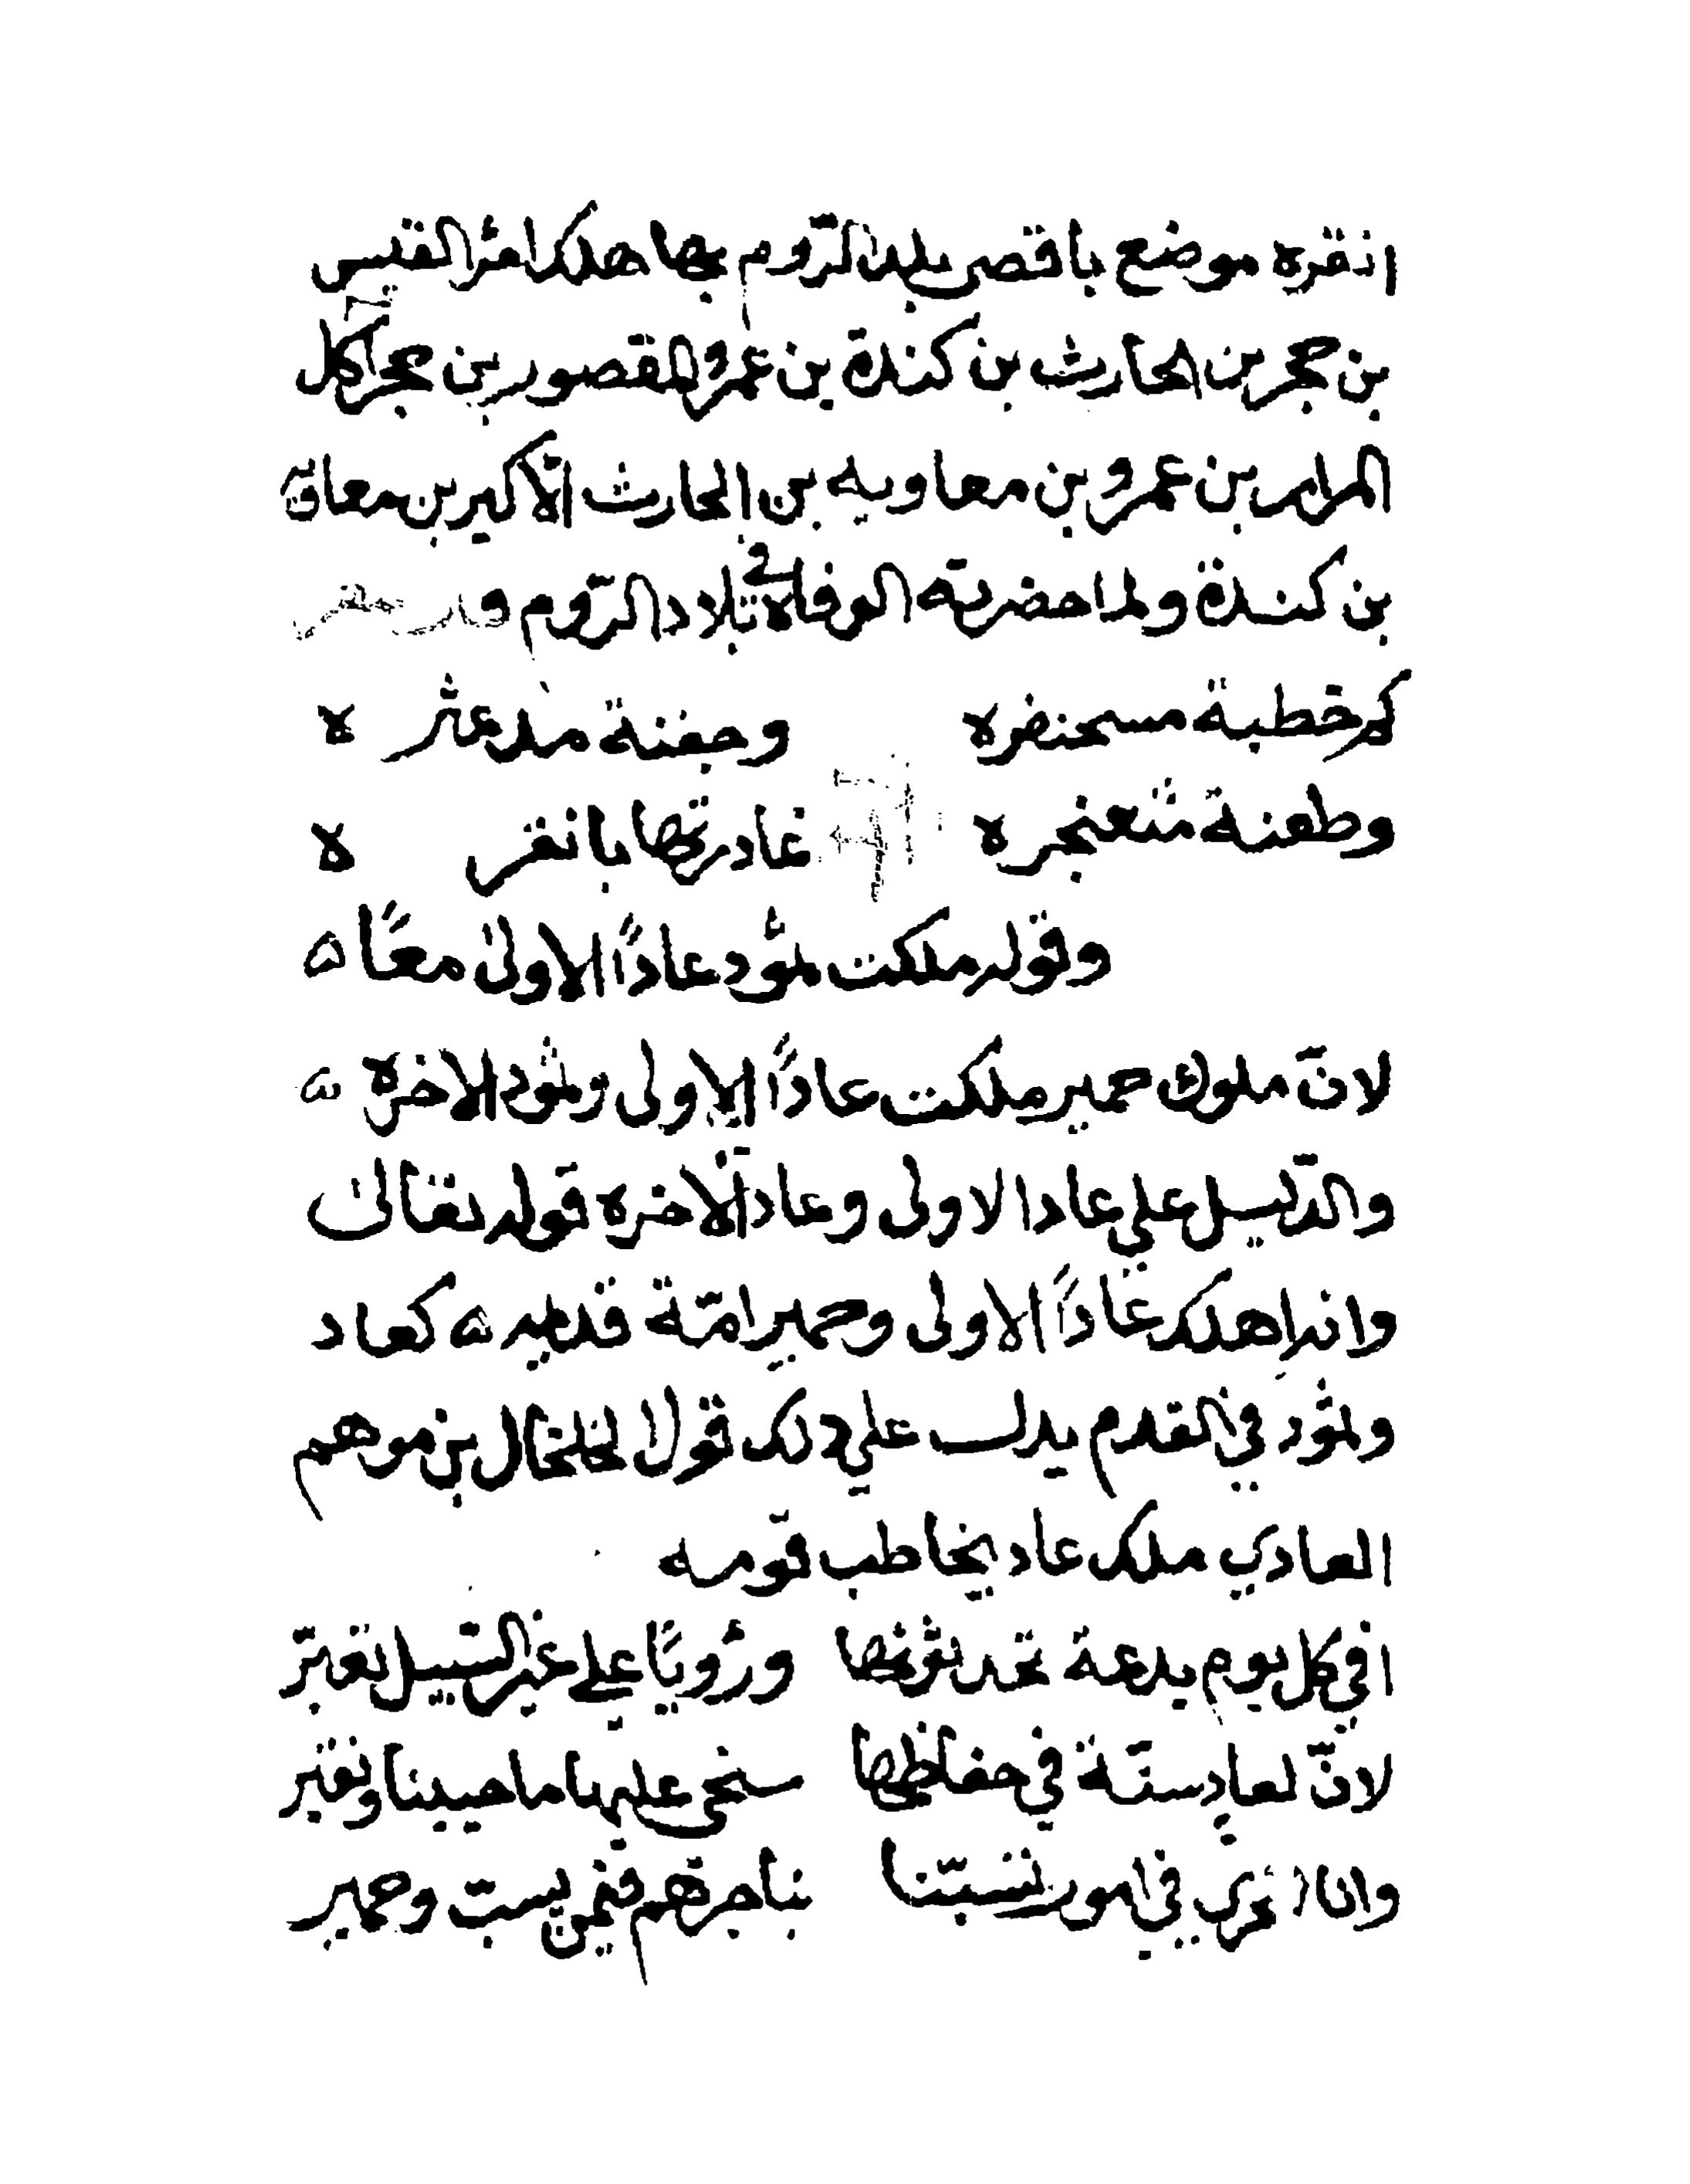 انقره موضع باقصى بلد الرّوم بها هلك امرؤ القيس
بن حجر بن الحارث بن كندة بن عمرو المقصور بن حجر اكل
المرار بن عمرو بن معاويه بن الحارث الاكبر بن معاوية
بن كندة ولما حضرته الوفاة في بلاد الرّوم
كم خطبة مسحنفره وجفنة مذعثره
وطعنة مثعنجره غادرتها بانقره
وقوله ملكت ثمود عاداً الاولى معاً ه
لانّ ملوك حمير ملكت عاداً الاولى وثمود الاخرة ه
والدّليل على عادا الاولى وعاد الآخرة قوله تعالى
وانه اهلك عاداً الاولى وحمير امّة قديمه كعاد
وثمود في القدم يدل على ذلك قول الخلخال بن موهم
العادي ملك عاد يخاطب قومه
افي كل يوم بدعة تحدثونها ورؤيا على غير السّبيل تعبّر
لانّ لعاد سنّة في حفاظها سنحى عليها ما حيينا ونقبر
وانا في امور تسبّنا بنا جرهم فيمن يسبّ وحمير